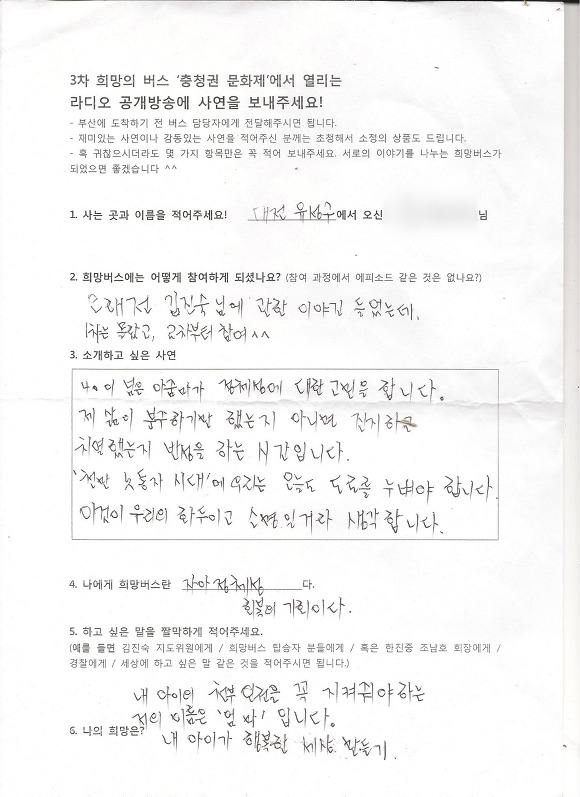 3차 희망의 버스 ‘충청권 문화제’에서 열리는
라디오 공개방송에 사연을 보내주세요!
- 부산에 도착하기 전 버스 담당자에게 전달해주시면 됩니다.
- 재미있는 사연이나 감동있는 사연을 적어주신 분께는 초청해서 소정의 상품도 드립니다.
- 혹 귀찮으시더라도 몇 가지 항목만은 꼭 적어 보내주세요. 서로의 이야기를 나누는 희망버스가
되었으면 좋겠습니다 ^^
1. 사는 곳과 이름을 적어주세요! 대전 유성구에서 오신 님
2. 희망버스에는 어떻게 참여하게 되셨나요? (참여 과정에서 에피소드 같은 것은 없나요?)
오래전 김진숙님에 관한 이야긴 들었는데.
1차는 몰랐고, 2차부터 참여^^
3. 소개하고 싶은 사연
40이 넘은 아줌마가 정체성에 대한 고민을 합니다.
제 삶이 분주하기만 했는지 아니면 진지하고
치열했는지 반성을 하는 시간입니다.
‘천만 노동자 시대’에 우리는 오늘도 도로를 누벼야 합니다.
이것이 우리의 화두이고 소명일거라 생각합니다.
4. 나에게 희망버스란 자아정체성 다.
회복의 기회이사.
5. 하고 싶은 말을 짤막하게 적어주세요.
(예를 들면 김진숙 지도위원에게 / 희망버스 탑승자 분들에게 / 혹은 한진중 조남호 회장에게 /
경찰에게 / 세상에 하고 싶은 말 같은 것을 적어주시면 됩니다.)
내 아이의 천부인권을 꼭 지켜줘야 하는
저의 이름은 ‘엄마’ 입니다.
6. 나의 희망은? 내 아이가 행복한 세상 만들기.